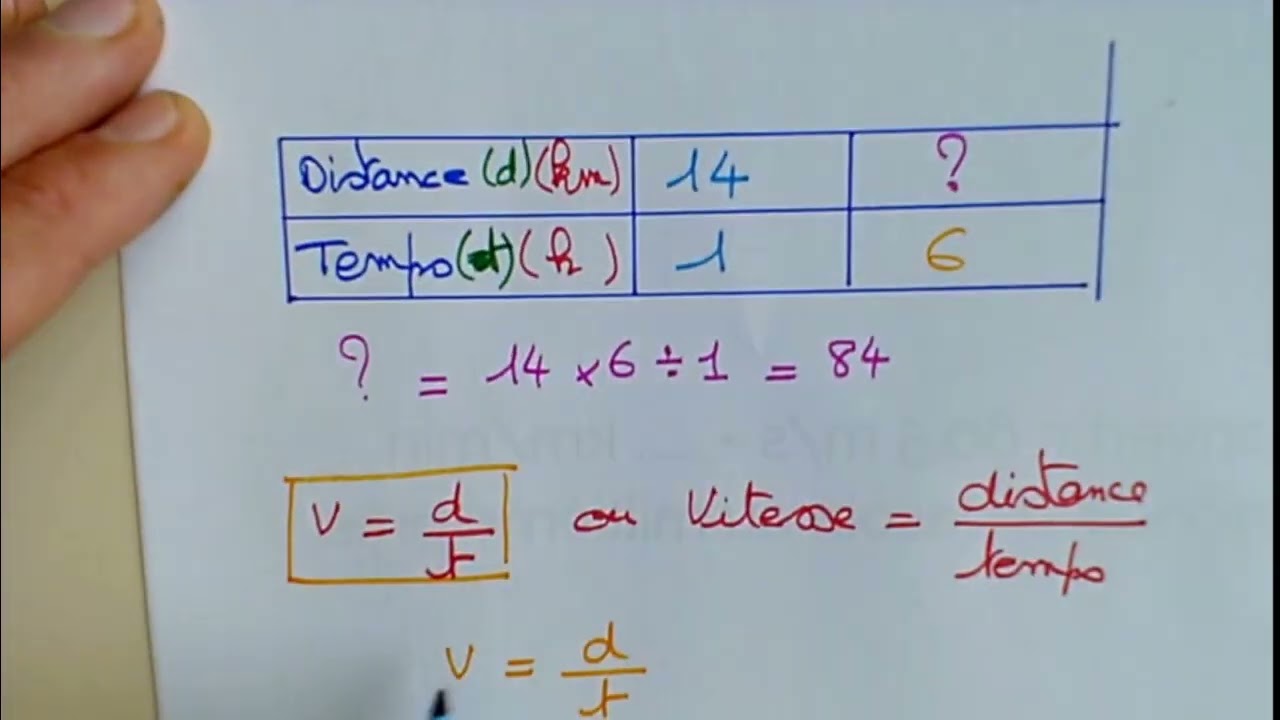 Distance (d) (km) 14 ?
Tempo (t) (h) 1 6
? = 14 × 6 ÷ 1 = 84
V = d/t ou Vitesse = distance/tempo
V = d/t